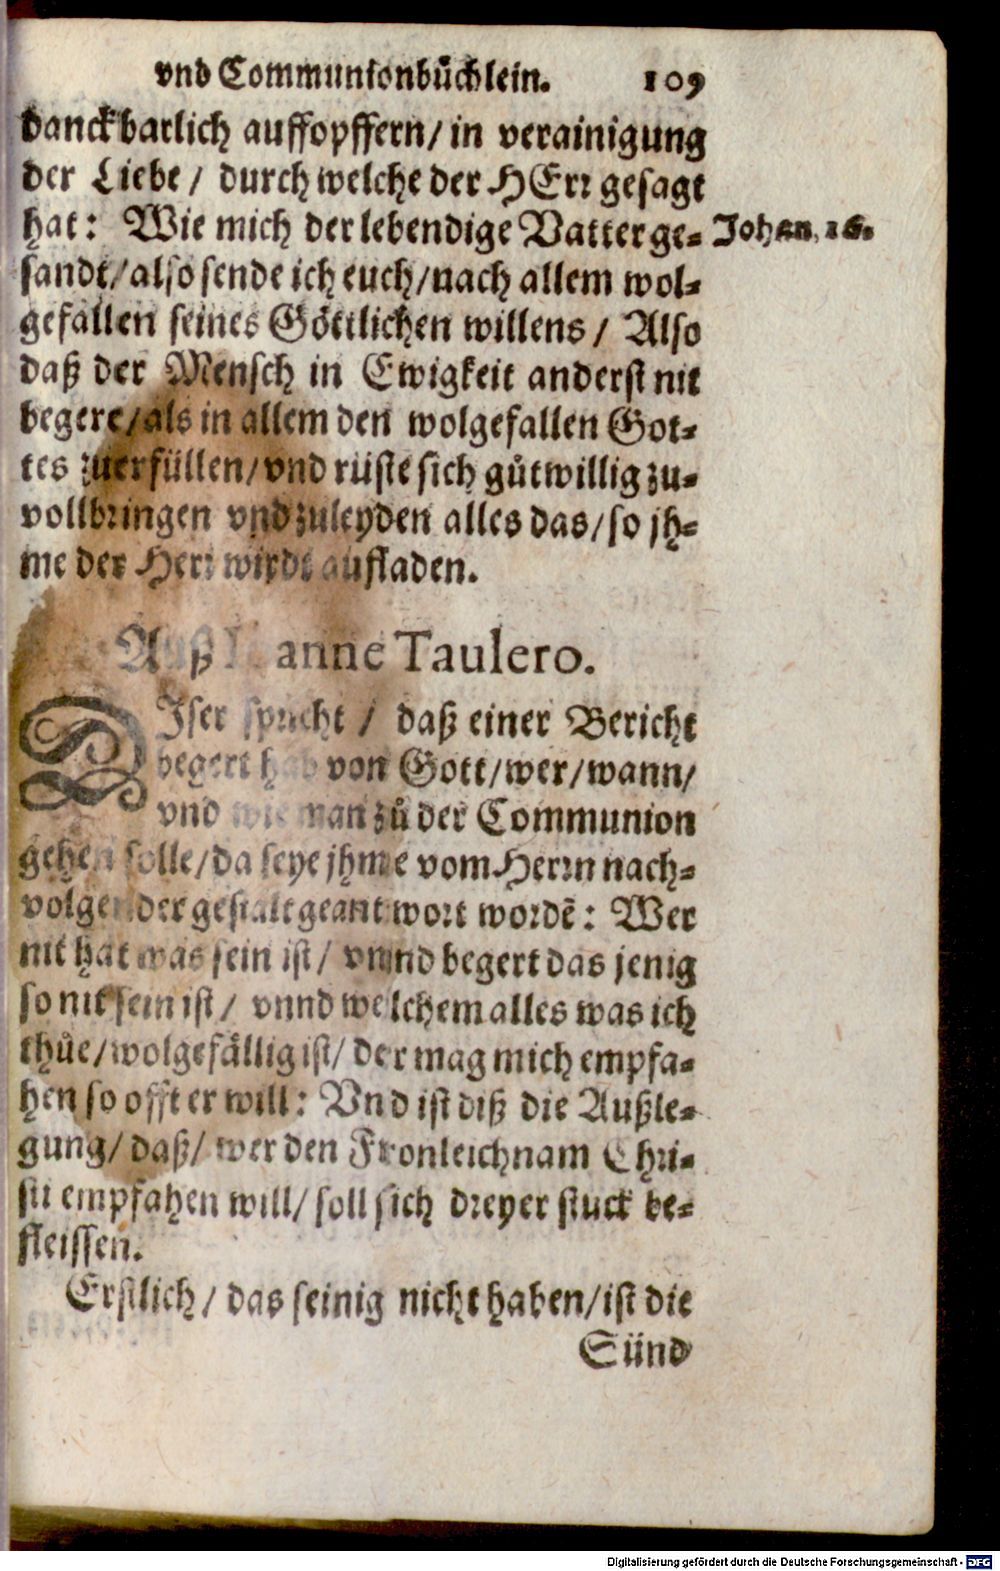 vnd Communionbůchlein. 109
danckbarlich auffopffern/ in verainigung
der Liebe / durch welche der HErr gesagt
hat: Wie mich der lebendige Vatter ge-
Johan. 16.
sandt/also sende ich euch/nach allem wol-
gefallen seines Göttlichen willens / Also
daß der Mensch in Ewigkeit anderst nit
begere/als in allem den wolgefallen Got-
tes zuerfüllen/vnd rüste sich gůtwillig zu-
vollbringen vnd zuleyden alles das/so jh-
me der Herr wirdt aufladen.
Auß anne Taulero.
DIser spricht / daß einer Bericht
begert hab von Gott/wer/wann/
vnd wie man zů der Communion
gehen solle/da seye jhme vom Herrn nach-
volgender gestalt geantwort wordẽ: Wer
nit hat was sein ist/ vnnd begert das jenig
so nit sein ist/ vnnd welchem alles was ich
thůe/wolgefällig ist/ der mag mich empfa-
hen so offt er will: Vnd ist diß die Außle-
gung/ daß/ wer den Fronleichnam Chri-
sti empfahen will/ soll sich dreyer stuck be-
fleissen.
Erstlich/ das seinig nicht haben/ist die
Sünd
Digitalisierung gefördert durch die Deutsche Forschungsgemeinschaft - DFG